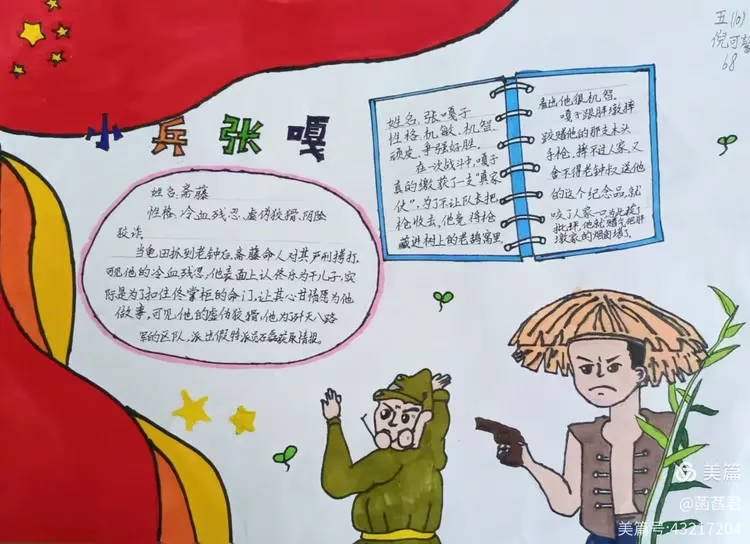 五(6)
倪可馨
68
小兵张嘎
姓名:斋藤
性格:冷血残忍、虚伪狡猾、阴险
狡诈
当龟田抓到老钟后,斋藤命人对其严刑拷打,
可见他的冷血残忍,他表面上认佟乐为干儿子,实
际是为了扣住佟掌柜的命门,让其心甘情愿为他
做事,可见他的虚伪狡猾,他为了歼灭八路
军的区队,派出假特派员石磊获取情报。
姓名:张嘎子
性格:机敏、机智、
顽皮、争强好胜。
在一次战斗中,嘎子
真的缴获了一支"真家
伙",为了不让队长把
枪收去,他竟将枪
藏进树上的老鸹窝里,
看出他很机智。
嘎子跟胖墩摔
跤赌他的那支木头
手枪,摔不过人家,又
舍不得老钟叔送他
的这个纪念品,就
咬了人家一口为此挨了
批评,他就赌气把胖
墩家的烟囱堵了。
美篇
@菡萏君
美篇号:43217204